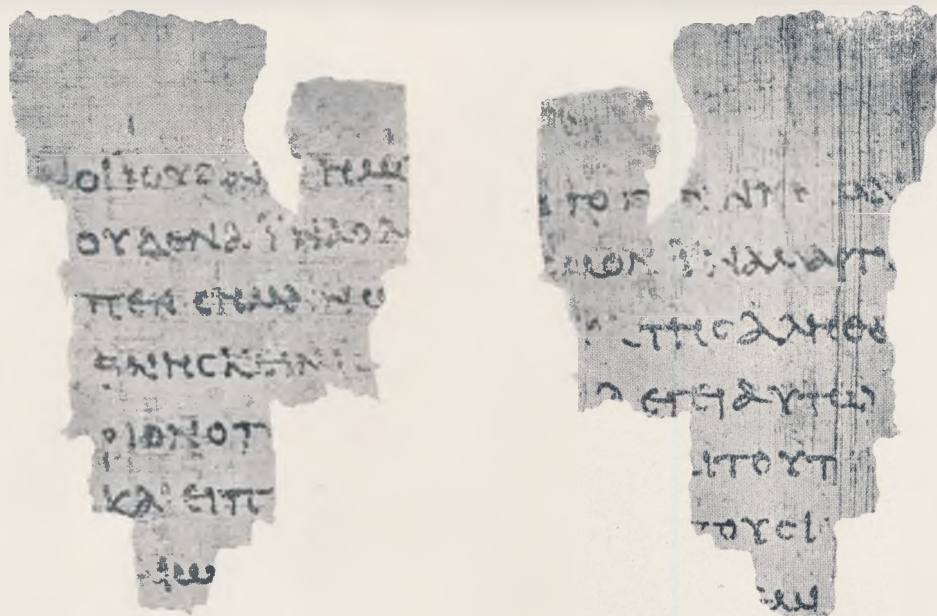 ΟΙ ΙΟΥΔΑΙ ΗΜΕ
ΟΥΔΕΝΑ ΪΝΑ Ο Λ
ΠΕΝ CΗΜΑΙΝΩ
ΘΝΗCΚΕΙΝ
ΡΙΟΝ Ο Π
ΚΑΙ ΕΙΠ
ΑΙΩ
ΤΟ ΓΕΓΕΝΝΗΜΑΙ
CΜΟΝ ΪΝΑ ΜΑΡΤΥ
ΤΗC ΑΛΗΘΕ
ΛΕΓΕΙ ΑΥΤΩ
ΑΙ ΤΟΥΤ
ΤΟΥC Ι
ΕΜΙ